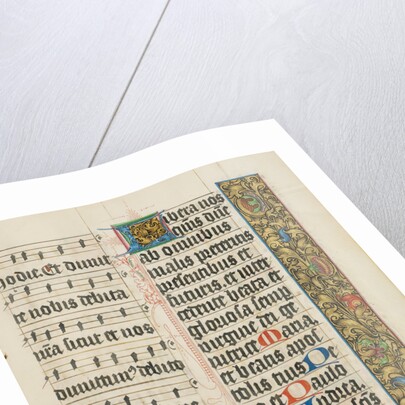 hodie. Et dimit
te nobis debita
nr̄a sicut et nos
dimittim⁹ debito
Libera nos
quẽs dñe
ab omnibus
malis preteritis
presentibus et
futuris. et inter
cedente beata et
gloriosa semp
virgine dei ge
nitrice Maria.
et beatis apos
tolis tuis
Paulo